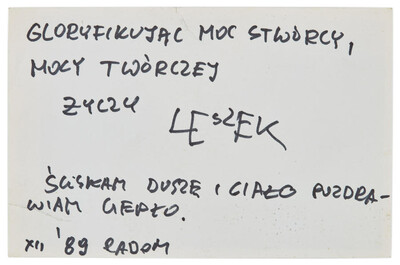 GLORYFIKUJĄC MOC STWÓRCY,
MOCY TWÓRCZEJ
ŻYCZY
LESZEK
ŚCISKAM DUSZĘ I CIAŁO POZDRA-
WIAM CIEPŁO.
XII '89 RADOM